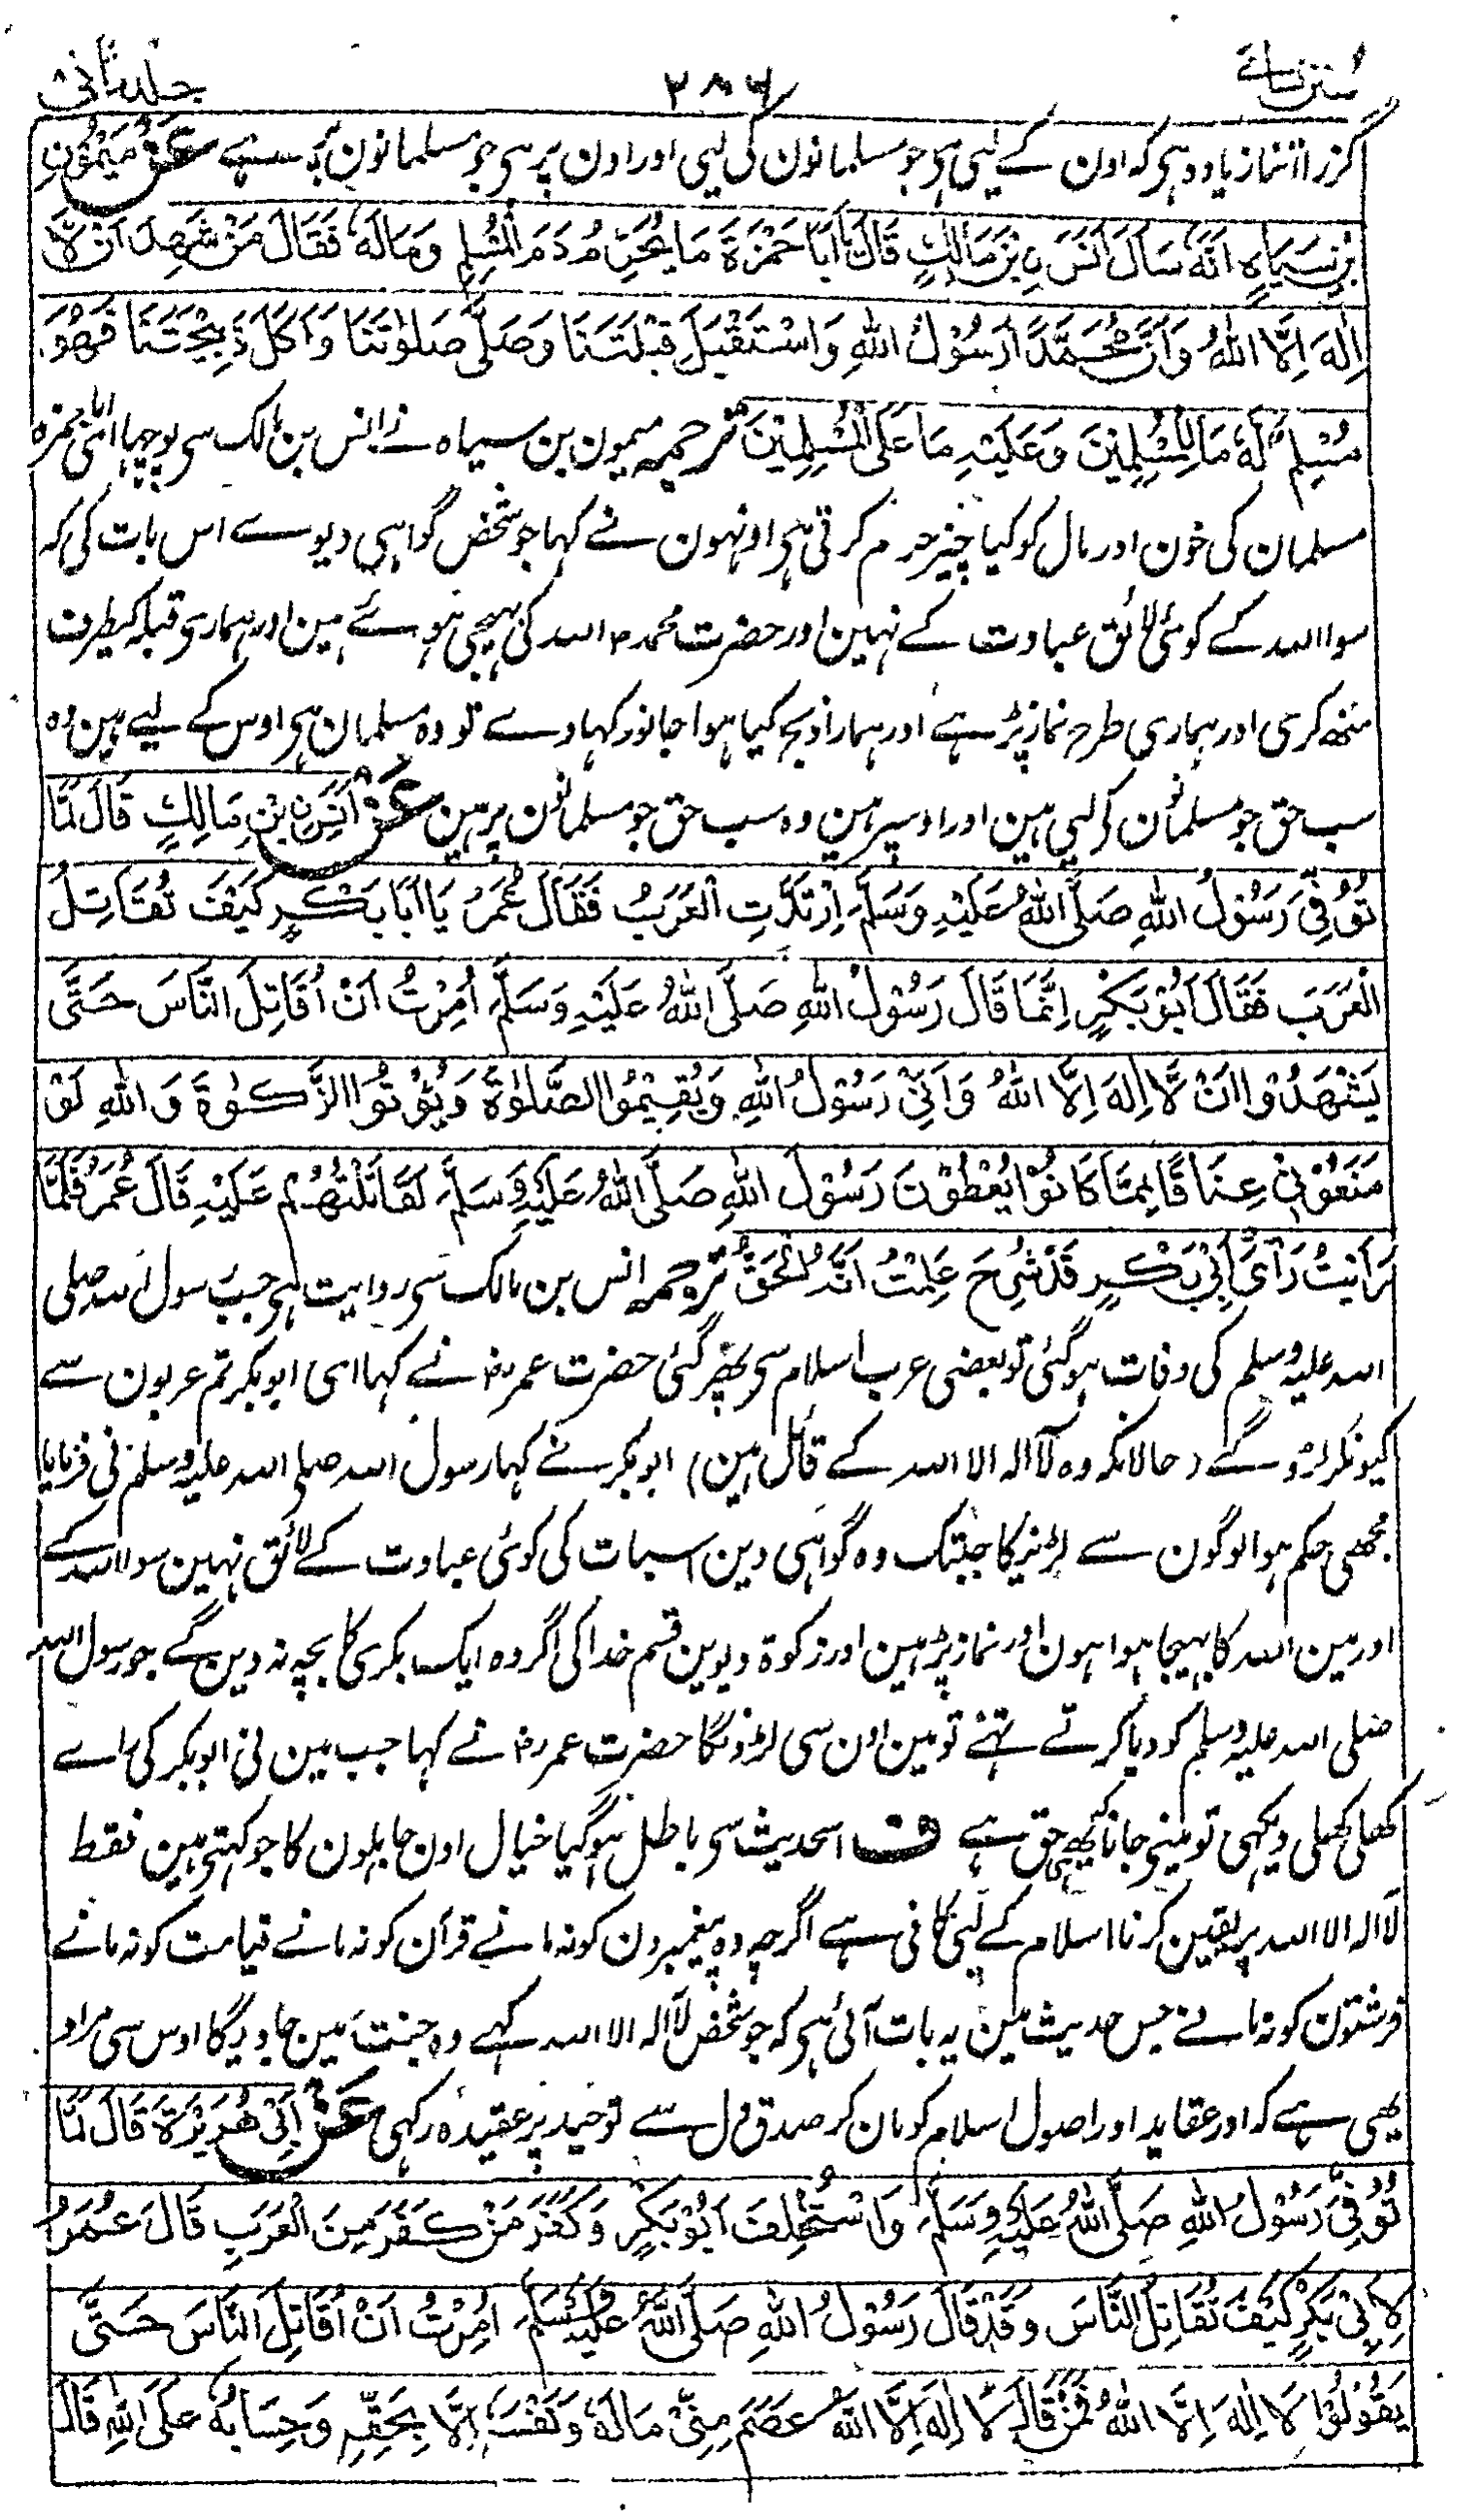 سنن نسائے ۲۸۶ جلد ثانی
گزرا اتنا زیادہ ہی کہ اون کے لیی ہی جو مسلمانون کی لیی اور اون پر ہی جو مسلمانون پر ہے عَنْ مَيْمُوْنِ
بْنِ سِيَاهٍ اَنَّهٗ سَاَلَ اَنَسَ بْنَ مَالِكٍ قَالَ يَا اَبَا حَمْزَةَ مَا يُحَرِّمُ دَمَ الْمُسْلِمِ وَمَالَهٗ فَقَالَ مَنْ شَهِدَ اَنْ لَّا
اِلٰهَ اِلَّا اللهُ وَاَنَّ مُحَمَّدًا رَسُوْلُ اللهِ وَاسْتَقْبَلَ قِبْلَتَنَا وَصَلّٰى صَلٰوتَنَا وَاَكَلَ ذَبِيْحَتَنَا فَهُوَ
مُسْلِمٌ لَهٗ مَا لِلْمُسْلِمِيْنَ وَعَلَيْهِ مَا عَلَى الْمُسْلِمِيْنَ ترجمہ میمون بن سیاہ نے انس بن مالک سی پوچہا ای ابا حمزہ
مسلمان کی خون اور مال کو کیا چیز حرام کرتی ہی اونہون نے کہا جو شخص گواہی دیوے اس بات کی کہ
سوا اللہ کے کوئی لائق عبادت کے نہین اور حضرت محمدؐ اللہ کی بہیجی ہوئے ہین اور ہماری قبلہ کیطرف
منھ کری اور ہماری طرح نماز پڑہے اور ہمارا ذبح کیا ہوا جانور کہاوے تو وہ مسلمان ہی اوس کے لیے ہین وہ
سب حق جو مسلمانون کی لیی ہین اور اوسپر ہین وہ سب حق جو مسلمانون پر ہین عَنْ اَنَسِ بْنِ مَالِكٍ قَالَ لَمَّا
تُوُفِّيَ رَسُوْلُ اللهِ صَلَّى اللهُ عَلَيْهِ وَسَلَّمَ اِرْتَدَّتِ الْعَرَبُ فَقَالَ عُمَرُ يَا اَبَا بَكْرٍ كَيْفَ تُقَاتِلُ
الْعَرَبَ فَقَالَ اَبُوْ بَكْرٍ اِنَّمَا قَالَ رَسُوْلُ اللهِ صَلَّى اللهُ عَلَيْهِ وَسَلَّمَ اُمِرْتُ اَنْ اُقَاتِلَ النَّاسَ حَتّٰى
يَشْهَدُوْا اَنْ لَّا اِلٰهَ اِلَّا اللهُ وَاَنِّيْ رَسُوْلُ اللهِ وَيُقِيْمُوا الصَّلٰوةَ وَيُؤْتُوا الزَّكٰوةَ وَاللهِ لَوْ
مَنَعُوْنِيْ عِنَاقًا مِمَّا كَانُوْا يُعْطُوْنَ رَسُوْلَ اللهِ صَلَّى اللهُ عَلَيْهِ وَسَلَّمَ لَقَاتَلْتُهُمْ عَلَيْهِ قَالَ عُمَرُ فَلَمَّا
رَاَيْتُ رَاْيَ اَبِيْ بَكْرٍ قَدْ شُرِحَ عَلِمْتُ اَنَّهُ الْحَقُّ ترجمہ انس بن مالک سی روایت ہی جب رسول اللہ صلی
اللہ علیہ وسلم کی وفات ہو گئی تو بعضی عرب اسلام سی پھر گئی حضرت عمرؓ نے کہا ای ابو بکر تم عربون سے
کیونکر لڑوگے (حالانکہ وہ لا الہ الا اللہ کے قائل ہین) ابو بکر نے کہا رسول اللہ صلی اللہ علیہ وسلم نی فرمایا
مجھی حکم ہوا لوگون سے لڑنیکا جبتک وہ گواہی دین اسبات کی کوئی عبادت کے لائق نہین سوا اللہ کے
اور مین اللہ کا بہیجا ہوا ہون اور نماز پڑہین اور زکوۃ دیوین قسم خدا کی اگر وہ ایک بکری کا بچہ نہ دین گے جو رسول اللہ
صلی اللہ علیہ وسلم کو دیا کرتے تہے تو مین اون سی لڑونگا حضرت عمرؓ نے کہا جب مین نی ابو بکر کی راے
کھلی کھلی دیکہی تو مینی جانا کہ یہی حق ہے ف اسحدیث سی باطل ہو گیا خیال اون جاہلون کا جو کہتی ہین فقط
لا الہ الا اللہ پر یقین کرنا اسلام کے لیی کافی ہے اگرچہ وہ پیغمبرون کو نہ مانے قرآن کو نہ مانے قیامت کو نہ مانے
فرشتون کو نہ مانے جس حدیث مین یہ بات آئی ہی کہ جو شخص لا الہ الا اللہ کہے وہ جنت مین جاویگا اوس سی مراد
یہی ہے کہ اور عقاید اور اصول اسلام کو مان کر صدق دل سے توحید پر عقیدہ رکہی عَنْ اَبِيْ هُرَيْرَةَ قَالَ لَمَّا
تُوُفِّيَ رَسُوْلُ اللهِ صَلَّى اللهُ عَلَيْهِ وَسَلَّمَ وَاسْتُخْلِفَ اَبُوْ بَكْرٍ وَكَفَرَ مَنْ كَفَرَ مِنَ الْعَرَبِ قَالَ عُمَرُ
لِاَبِيْ بَكْرٍ كَيْفَ تُقَاتِلُ النَّاسَ وَقَدْ قَالَ رَسُوْلُ اللهِ صَلَّى اللهُ عَلَيْهِ وَسَلَّمَ اُمِرْتُ اَنْ اُقَاتِلَ النَّاسَ حَتّٰى
يَقُوْلُوْا لَا اِلٰهَ اِلَّا اللهُ فَمَنْ قَالَ لَا اِلٰهَ اِلَّا اللهُ عَصَمَ مِنِّيْ مَالَهٗ وَنَفْسَهٗ اِلَّا بِحَقِّهٖ وَحِسَابُهٗ عَلَى اللهِ قَالَ